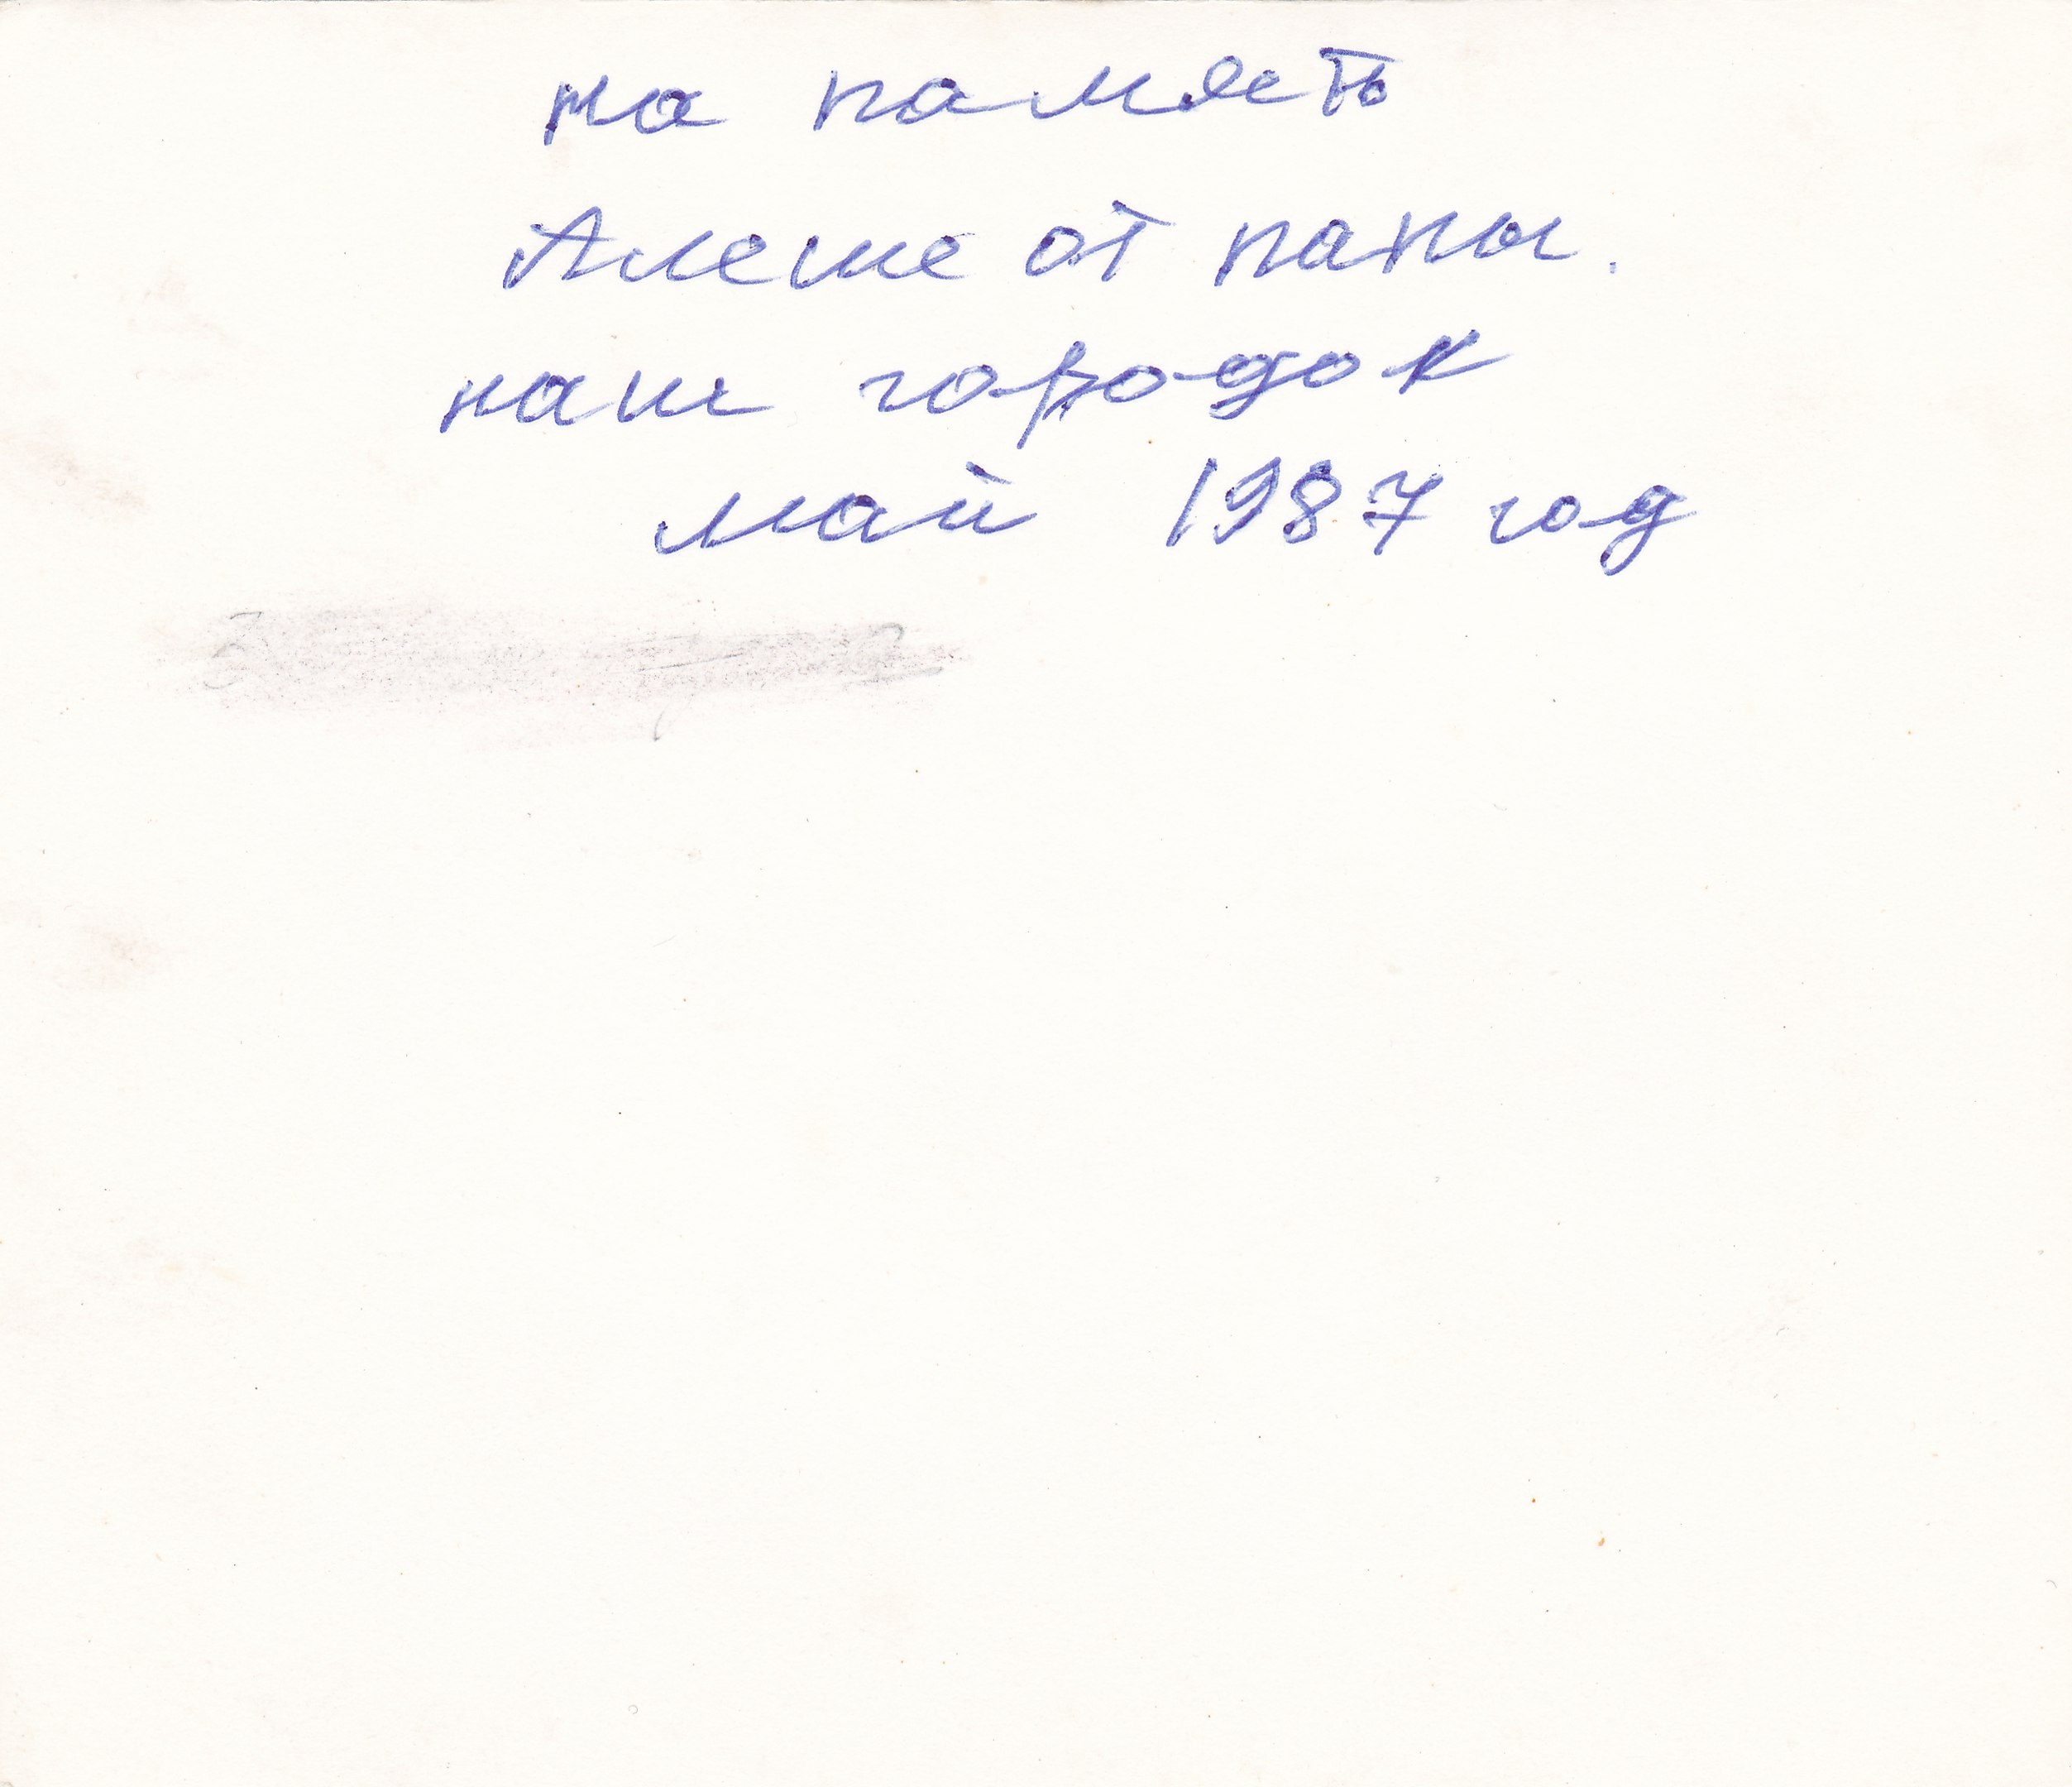 на память
Алеше от папы.
наш городок
май 1987 год